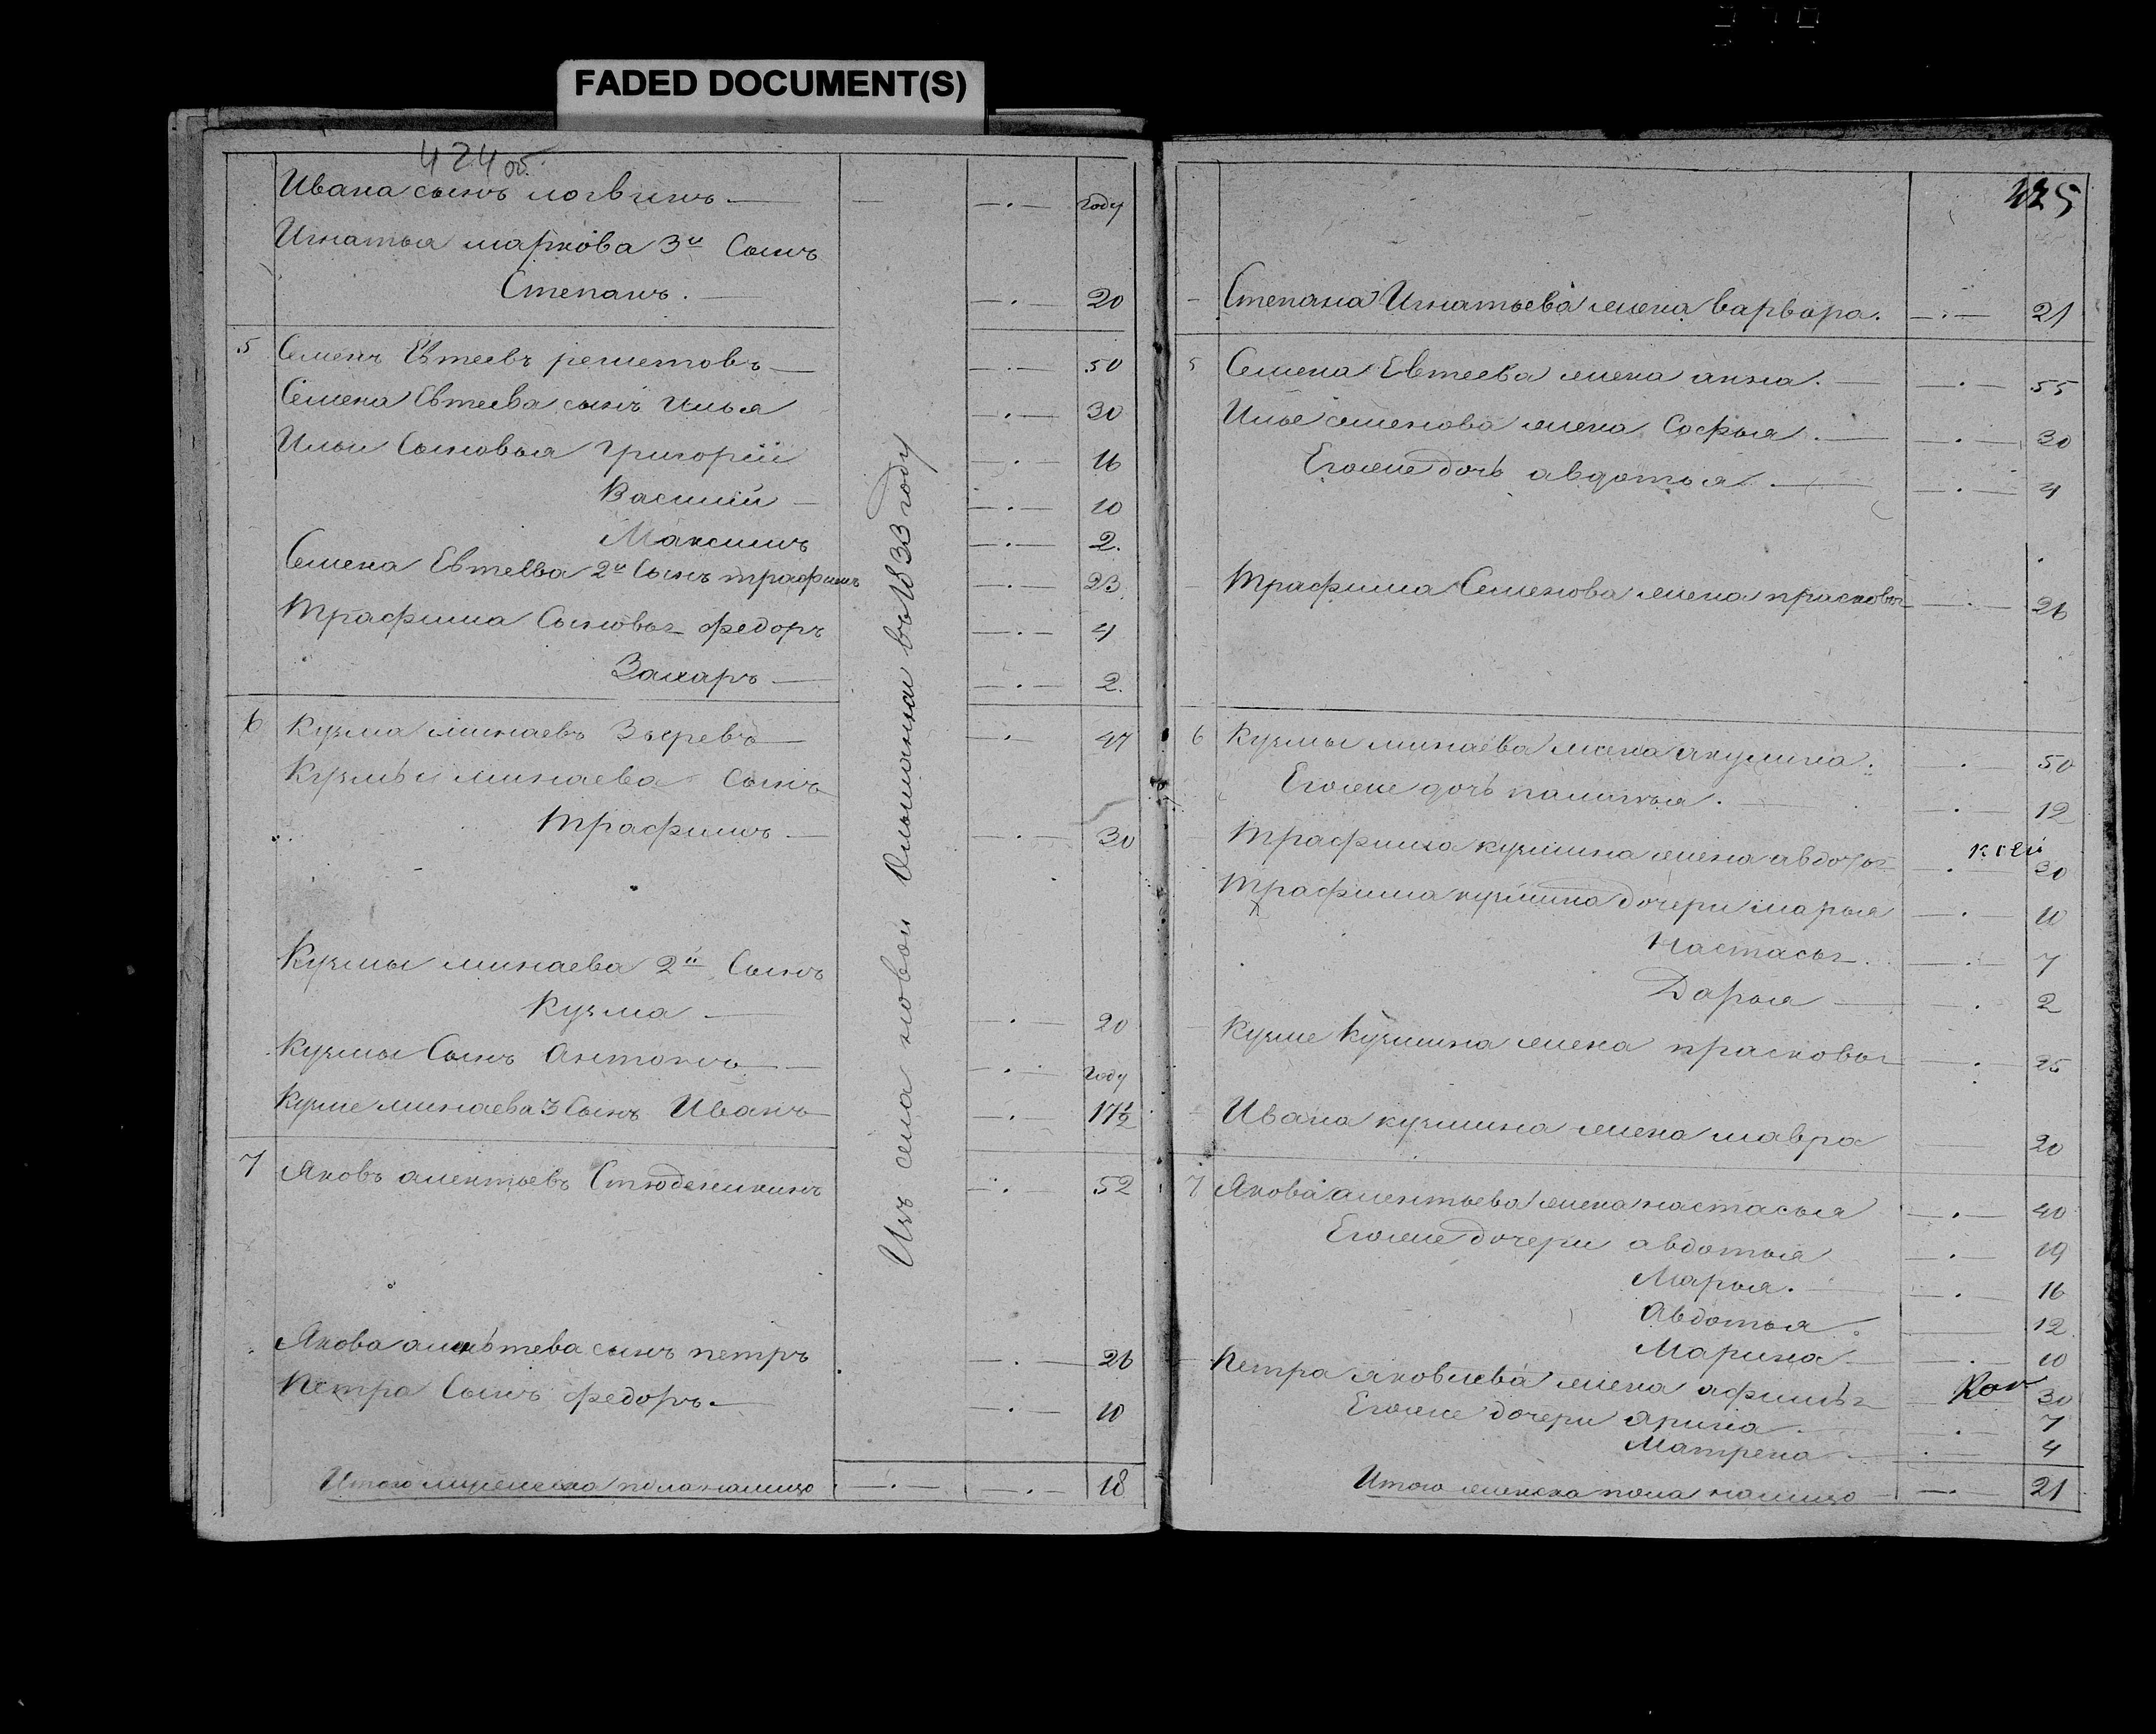 FADED DOCUMENT(S)
424 об.
Ивана сынъ логвинъ — году
Игнатья маркова 3й Сынъ
Степанъ. 20
5 Семенъ Евтеевъ решетовъ 50
Семена Евтеева сынъ Илья 30
Ильи Сыновья григорiй 16
Василiй 10
Максимъ 2.
Семена Евтеева 2й Сынъ трафимъ 23
Трафима Сыновья федоръ 4
Захаръ 2.
6 Кузма минаевъ Зверевъ 47
Кузмы минаева Сынъ
Трафимъ 30
Кузмы минаева 2й Сынъ
Кузма 20
Кузмы Сынъ Антонъ году
Кузме минаева 3 Сынъ Иванъ 17½
7 Яковъ алентьевъ Стюденикинъ 52
Якова алентева сынъ петръ 26
Петра Сынъ федоръ 10
Итого мужеска пола налицо 18
Изъ села новой Ольшанки въ 1833 году
425
Степана Игнатьева жена варвара. 21
5 Семена Евтеева жена анна. 55
Илье семенова жена Софья. 30
Егоже дочь авдотья. 4
Трафима Семенова жена прасковья 26
6 Кузмы минаева жена акулина. 50
Егоже дочь
12
Трафима кузмина жена авдотья 30
Трафима кузмина дочери марья 10
Настасья. 7
Дарья 2
Кузме Кузмина жена прасковья 25
Ивана кузмина жена мавра 20
7 Якова алентьева жена настасья 40
Егоже дочери авдотья 19
Марья. 16
Авдотья. 12
Марина 10
Петра яковлева жена афимья 30
Егоже дочери Арина 7
Матрена 4
Итого женска пола налицо 21